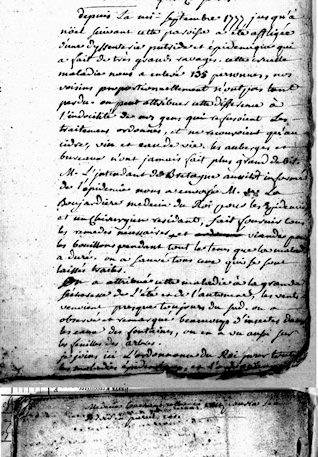 depuis La mi-Septembre 1777 jusqu'à
nöel suivant cette paroisse a été affligée
d'une dyssenterie putride et épidémique qui
a fait de tres grands ravages. cette cruelle
maladie nous a enlevé 135 personnes, nos
voisins proportionnellement n'ont pas tant
perdu. on peut attribuer cette difference a
l'indocilité de nos gens qui refusoient Les
traitemens ordonnés, et ne recouroient qu'au
cidre, vin et eau de vie. les auberges et
bureaux n'ont jamais fait plus grand debit.
M. L'intendant de Bretagne aussitôt informé
de l'épidemie nous a envoyé M. de La
Boujardiere medecin du Roi pour les épidemies
et un Chirurgien residant, fait fournir tous
les remedes necessaires et viande pour
les bouillons pendant tout le tems que la maladie
a duré. on a sauvé tous ceux qui se sont
laissés traités.
On a attribué cette maladie à la grande
secheresse de L'été et de l'automne, les vents
venoient presque toujours du sud. on a
observé et remarqué beaucoup d'insectes dans
les eaux des fontaines, on en a vu aussi sur
les feuilles des arbres.
je joins ici L'ordonnance du Roi pour toutes
les maladies épidemiques, et